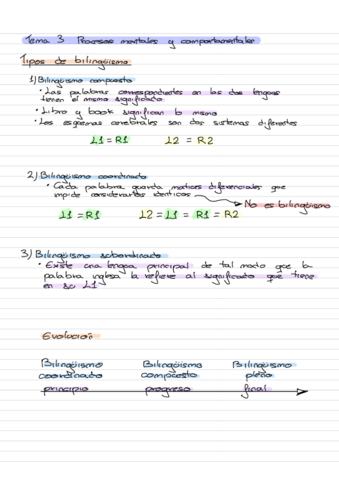 Tema 3 Procesos mentales y comportamentales
Tipos de bilingüismo
1) Bilingüismo compuesto
• Las palabras correspondientes en las dos lenguas
tienen el mismo significado
• Libro y book significan lo mismo
• Los esquemas cerebrales son dos sistemas diferentes
L1 = R1 L2 = R2
2) Bilingüismo coordinado
• Cada palabra guarda matices diferenciales que
impide considerarlas idénticas
No es bilingüismo
L1 = R1 L2 = L1 = R1 = R2
3) Bilingüismo subordinado
• Existe una lengua principal de tal modo que la
palabra inglesa la refiere al significado que tiene
en su L1
Evolución
Bilingüismo coordinado Bilingüismo compuesto Bilingüismo pleno
principio progreso final